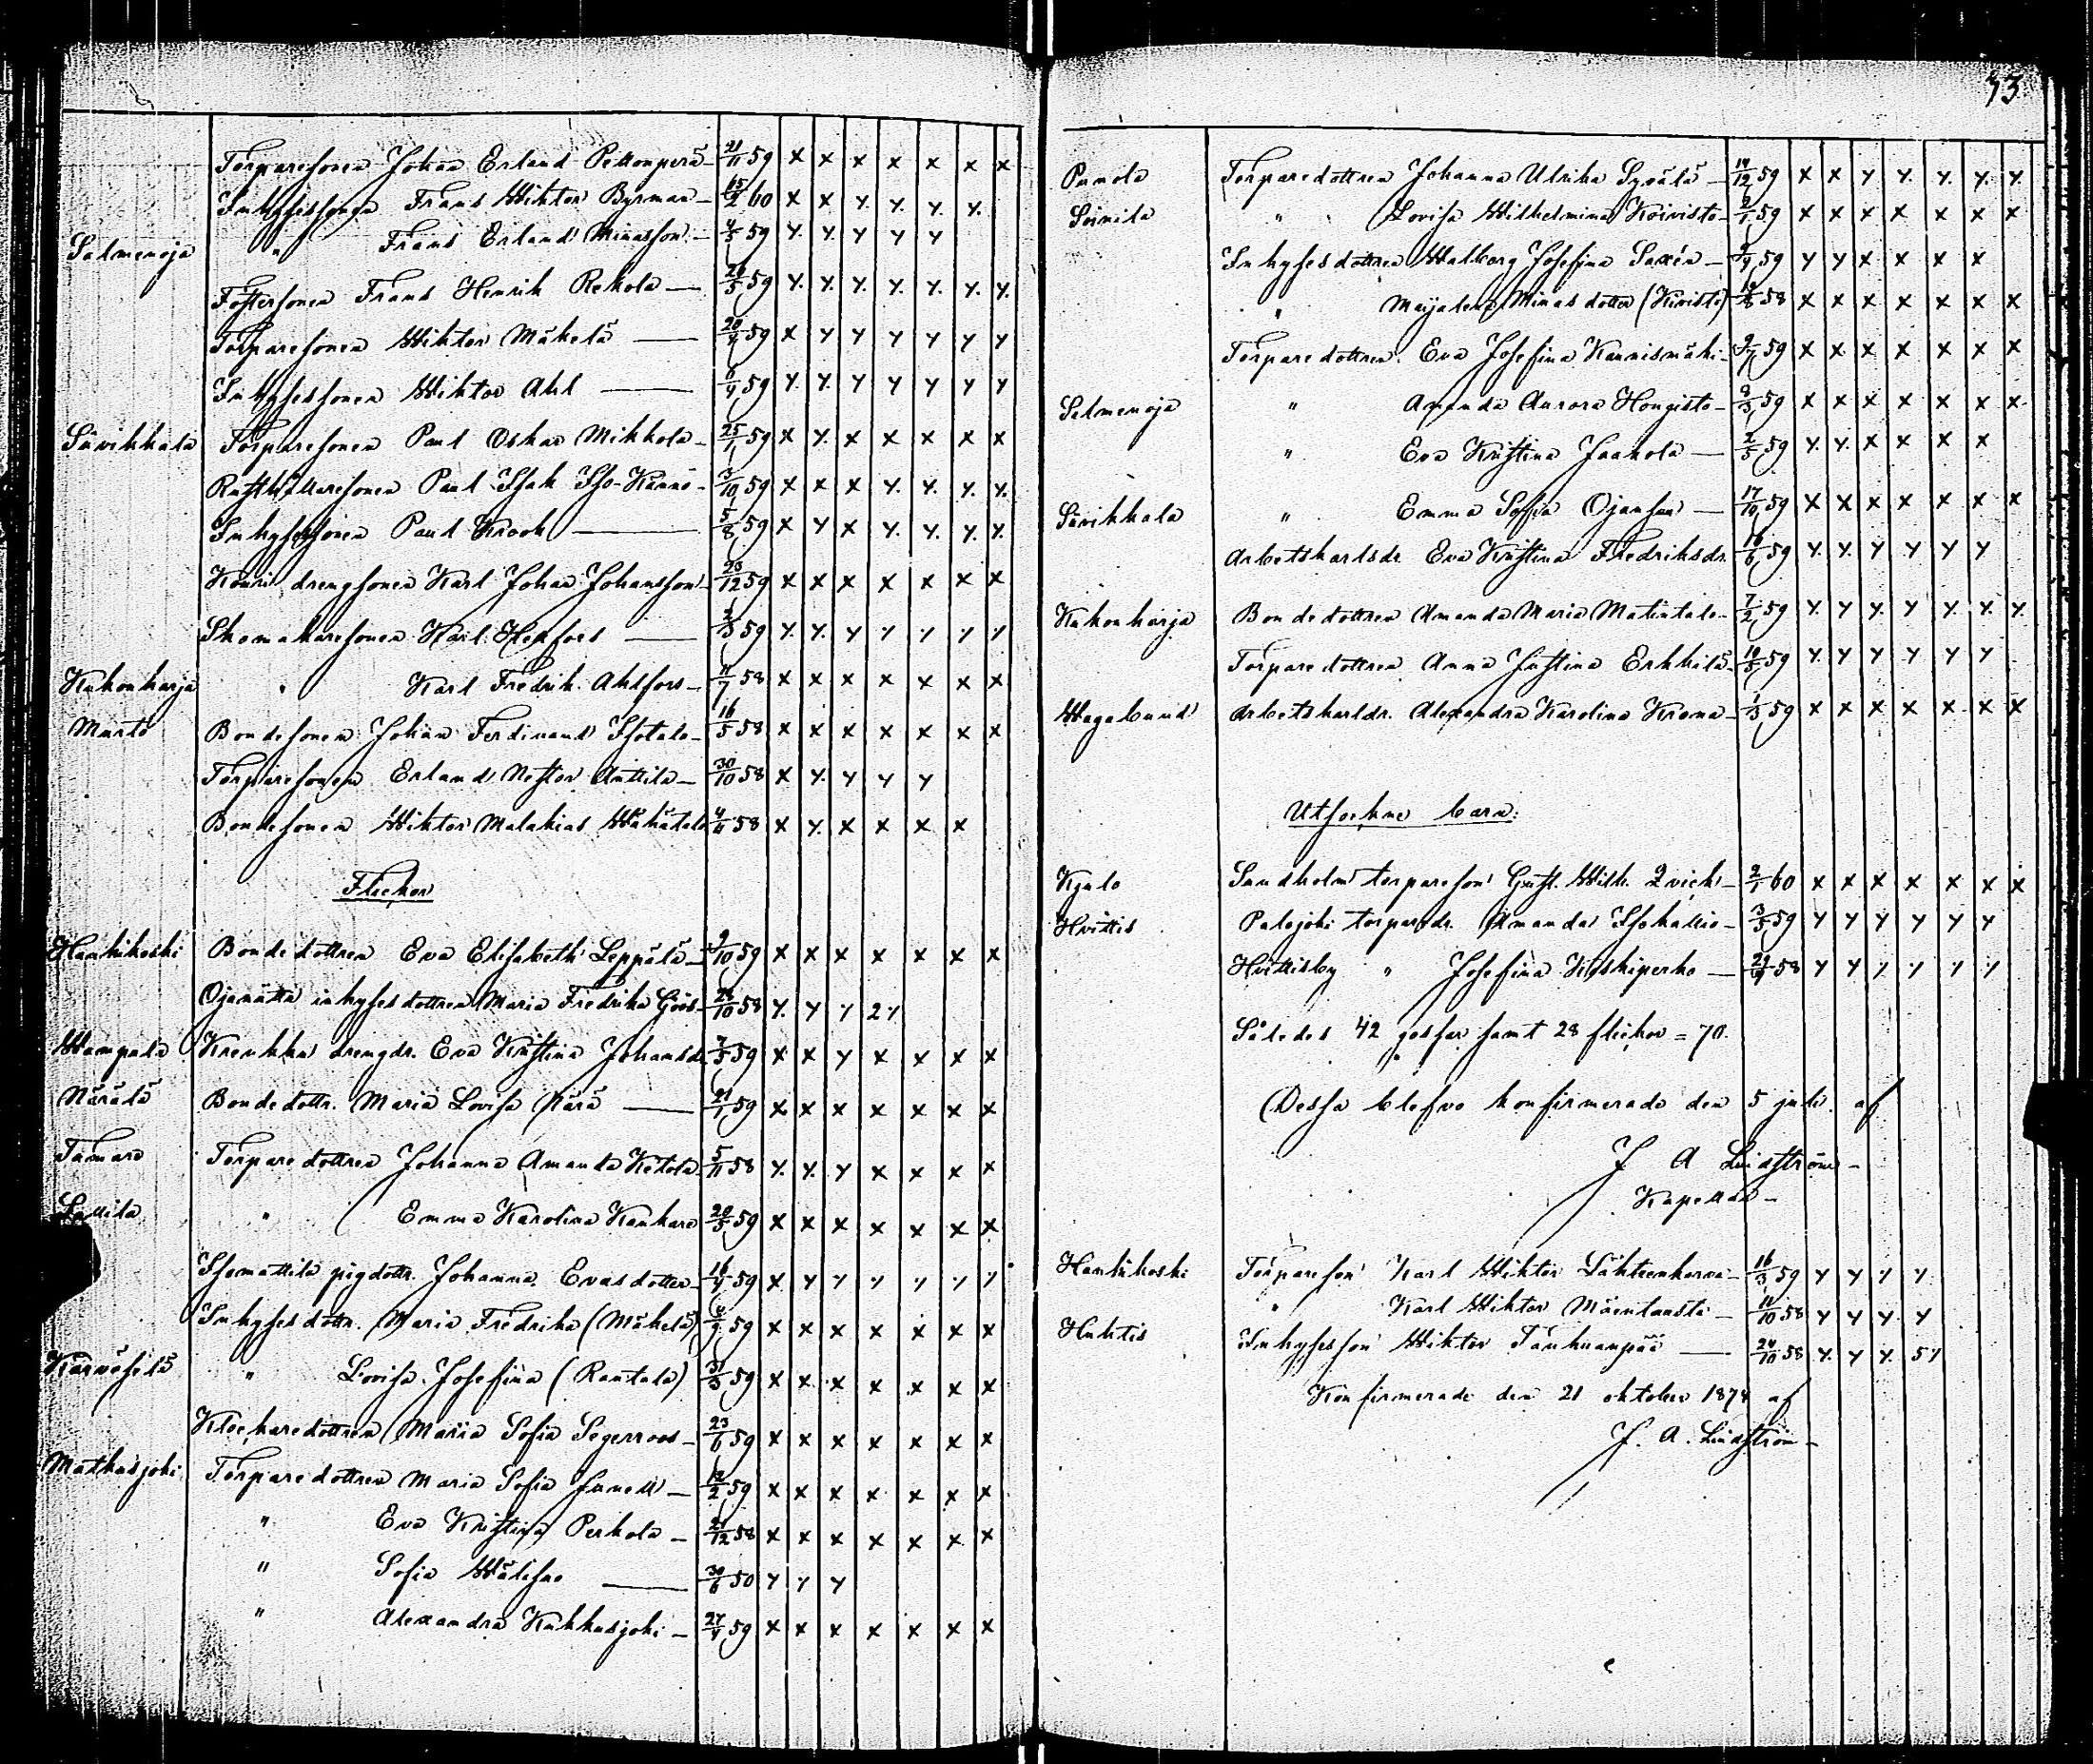 Torparesonen Johan Erland Peltonperä 21/11 59 x x x x x x x
Inhysessonen Frans Wiktor Byrman 15/2 60 x x y y y y
Salmenoja " Frans Erland Minasson 4/5 59 y y y y y
Fostersonen Frans Henrik Rekola 26/5 59 y y y y y y y
Torparesonen Wiktor Mäkelä 20/4 59 x y y y y y y
Inhysessonen Wiktor Ahl 6/4 59 y y y y y y y
Sävikkala Torparesonen Paul Oskar Mikkola 25/1 59 x y x x x x x
Rusthållaresonen Paul Isak Iso-Kännö 3/10 59 x x x y y y y
Inhysessonen Paul Krook 5/8 59 x y x y y y y
drengsonen Karl Johan Johansson 23/12 59 x x x x x x x
Skomakaresonen Karl Hexfors 59 y y y y y y y
Kukonharja " Karl Fredrik Ahlfors 11/7 58 x x x x x x x
Murto Bondesonen Johan Ferdinand Isotalo 16/5 58 x x x x x x x
Torparesonen Erland Nestor Anttila 30/10 58 x y y y y
Bondesonen Wiktor Malakias Wähätalo 4/11 58 x y x x x x
Flickor
Hankikoski Bondedottren Eva Elisabeth Leppälä 9/10 59 x x x x x x x
Ojanätta inhysesdottren Maria Fredrika Göös 24/10 58 y y y 2 y
Wampula Kreukku drengdr. Eva Kristina Johansdr 7/5 59 x x y x x x x
Närälä Bondedottr. Maria Lovisa Närä 21/1 59 x x x x x x x
Tamare Torparedottren Johanna Amanda Ketola 5/11 58 y y y x x x x
Sallila " Emma Karolina Kankare 20/5 59 x x x x x x x
Isomattila pigdottr. Johanna Evasdotter 16/4 59 x y y y y y y
Inhysesdottr. Maria Fredrika (Mäkelä) 59 x x x x x x x
" Lovisa Josefina (Rantala) 31/3 59 x x x x x x x
Klockaredottren Maria Sofia Segerroos 23/6 59 x x x x x x x
Matkusjoki Torparedottren Maria Sofia Junell 12/2 59 x x x x x x x
" Eva Kristina Perkola 21/12 58 x x x x x x x
" Sofia Wälisuo 30/6 50 y y y
" Alexandra Kukkusjoki 27/4 59 x x x x x x x
73
Punola Torparedottren Johanna Ulrika Syvälä 14/12 59 x x y y y y y
Soinila " Lovisa Wilhelmina Koivisto 59 x x x x x x x
Inhysesdottren Walborg Josefina Saxén 59 y y x x x x
" Maijalena Minasdotter (Kivistö) 58 x x x x x x x
Torparedottren Eva Josefina Kannismäki 59 x x x x x x x
Salmenoja " Amanda Aurora Hongisto 59 x x x x x x x
" Eva Kristina Jaakola 2/5 59 y y x x x x
Sävikkala " Emma Sofia Ojansuu 17/10 59 x x x x x x x
Arbetskarlsdr. Eva Kristina Fredriksdr. 16/6 59 y y y y y y
Kukonharja Bondedottren Amanda Maria Matintalo 7/2 59 y y y y y y y
Torparedottren Anna Justina Erkkilä 19/5 59 y y y y y y
Wagabund Arbetskarldr. Alexandra Karolina Kroma 1/5 59 x x x x x x x
Utsockne barn:
Kjulo Sundholm torpareson Gust. Wilh. Qvick 2/1 60 x x x x x x x
Hvittis Palojoki torparedr. Amanda Isokallio 3/5 59 y y y y y y
Hvittisby " Josefina Koskiperko 58 y y y y y y
Således 42 gossar samt 28 flickor = 70.
Dessa blefvo konfirmerade den 5 juli af
J A Lindström
Kapellan
Hankikoski Torpareson Karl Wiktor Lähteenkorva 16/3 59 y y y y
" Karl Wiktor Mäentausta 11/10 58 y y y y
Huhtis Inhysesson Wiktor Tanhuanpää 24/10 58 y y y 5 y
Konfirmerade den 21 oktober 1874 af
J. A. Lindström